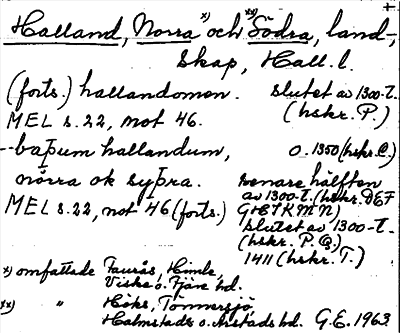 +
Halland, Norra x) och xx) Södra, land-,
skap, Hall. l.
(forts.) hallandomen. slutet av 1300-t.
(hskr. P.)
MEL s. 22, not 46.
--baþum hallandum, o. 1350 (hskr. C.)
nörra ok syþra. senare hälften
av 1300-t. (hskr. DEF
MEL s. 22, not 46 (forts.) GHIKMN)
slutet av 1300-t.
(hskr. P. Q.)
1411 (hskr. T.)
x) omfattade Faurås, Himle,
Viske o. Fjäre hd.
xx) " Höks, Tönnersjö
Halmstads o. Årstads hd. G.E. 1963